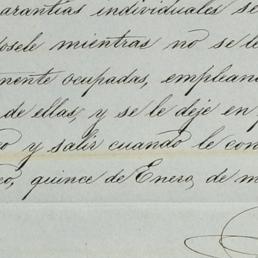 arantías individuales se
dosele mientras no se le
mente ocupadas, emplean
de ellas, y se le deje en p
o y salir cuando le con
co, quince de Enero, de m